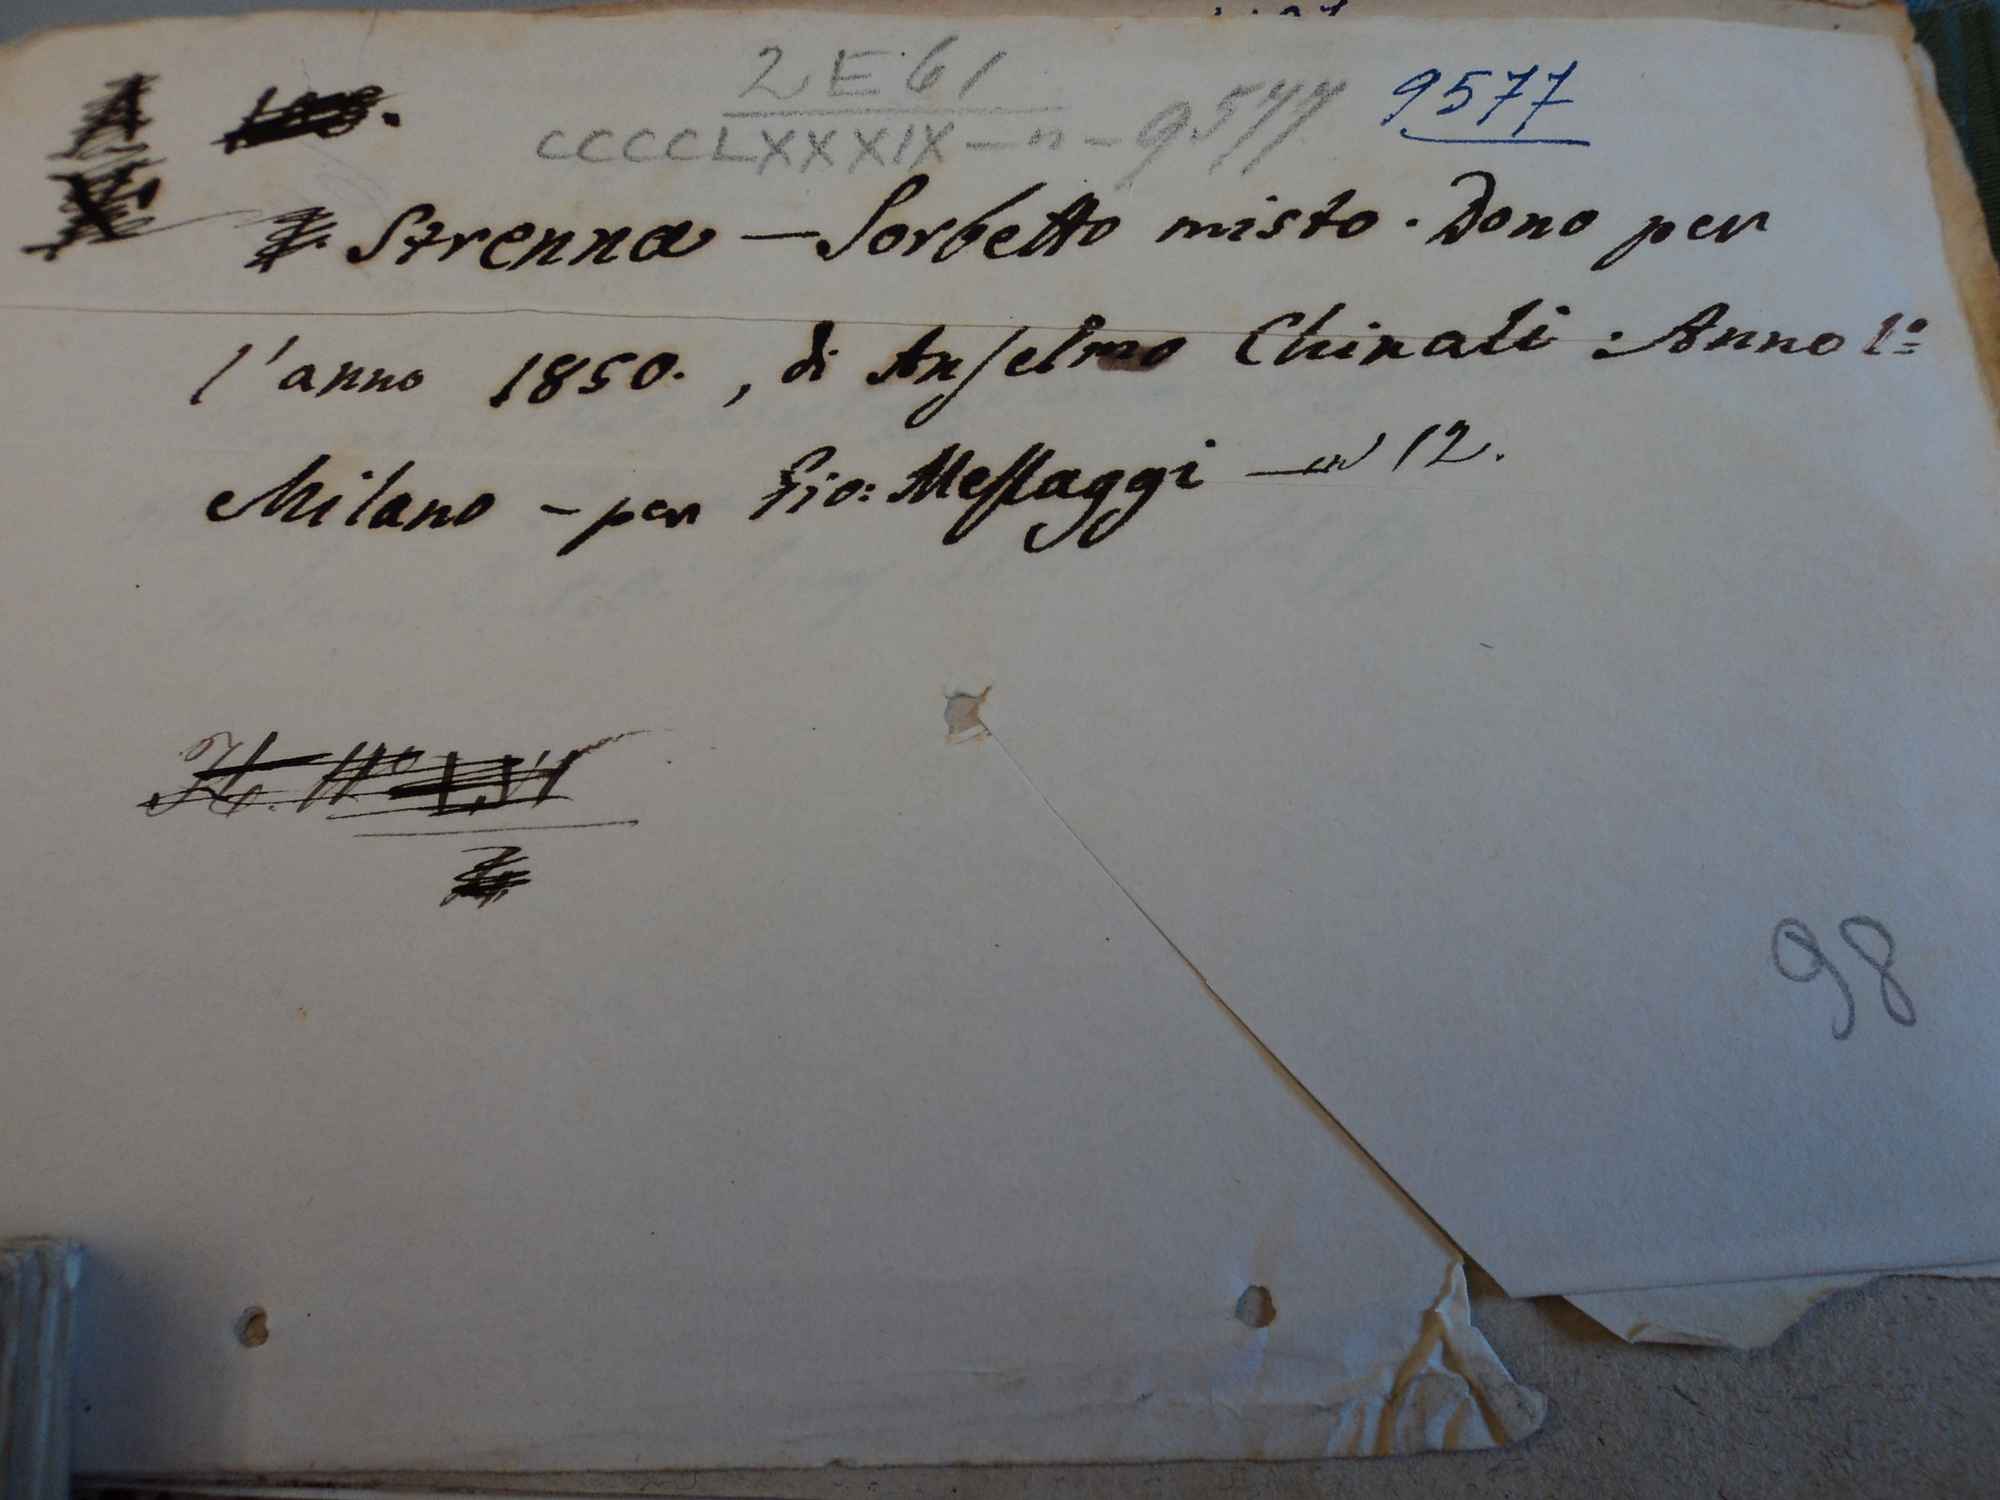 2 E 61
CCCCLXXXIX - n - 9577
9577
Strenna - Sorbetto misto. Dono per
l'anno 1850. , di Anselmo Chinali : Anno 1º
Milano - per Gio: Messaggi - in 12.
98